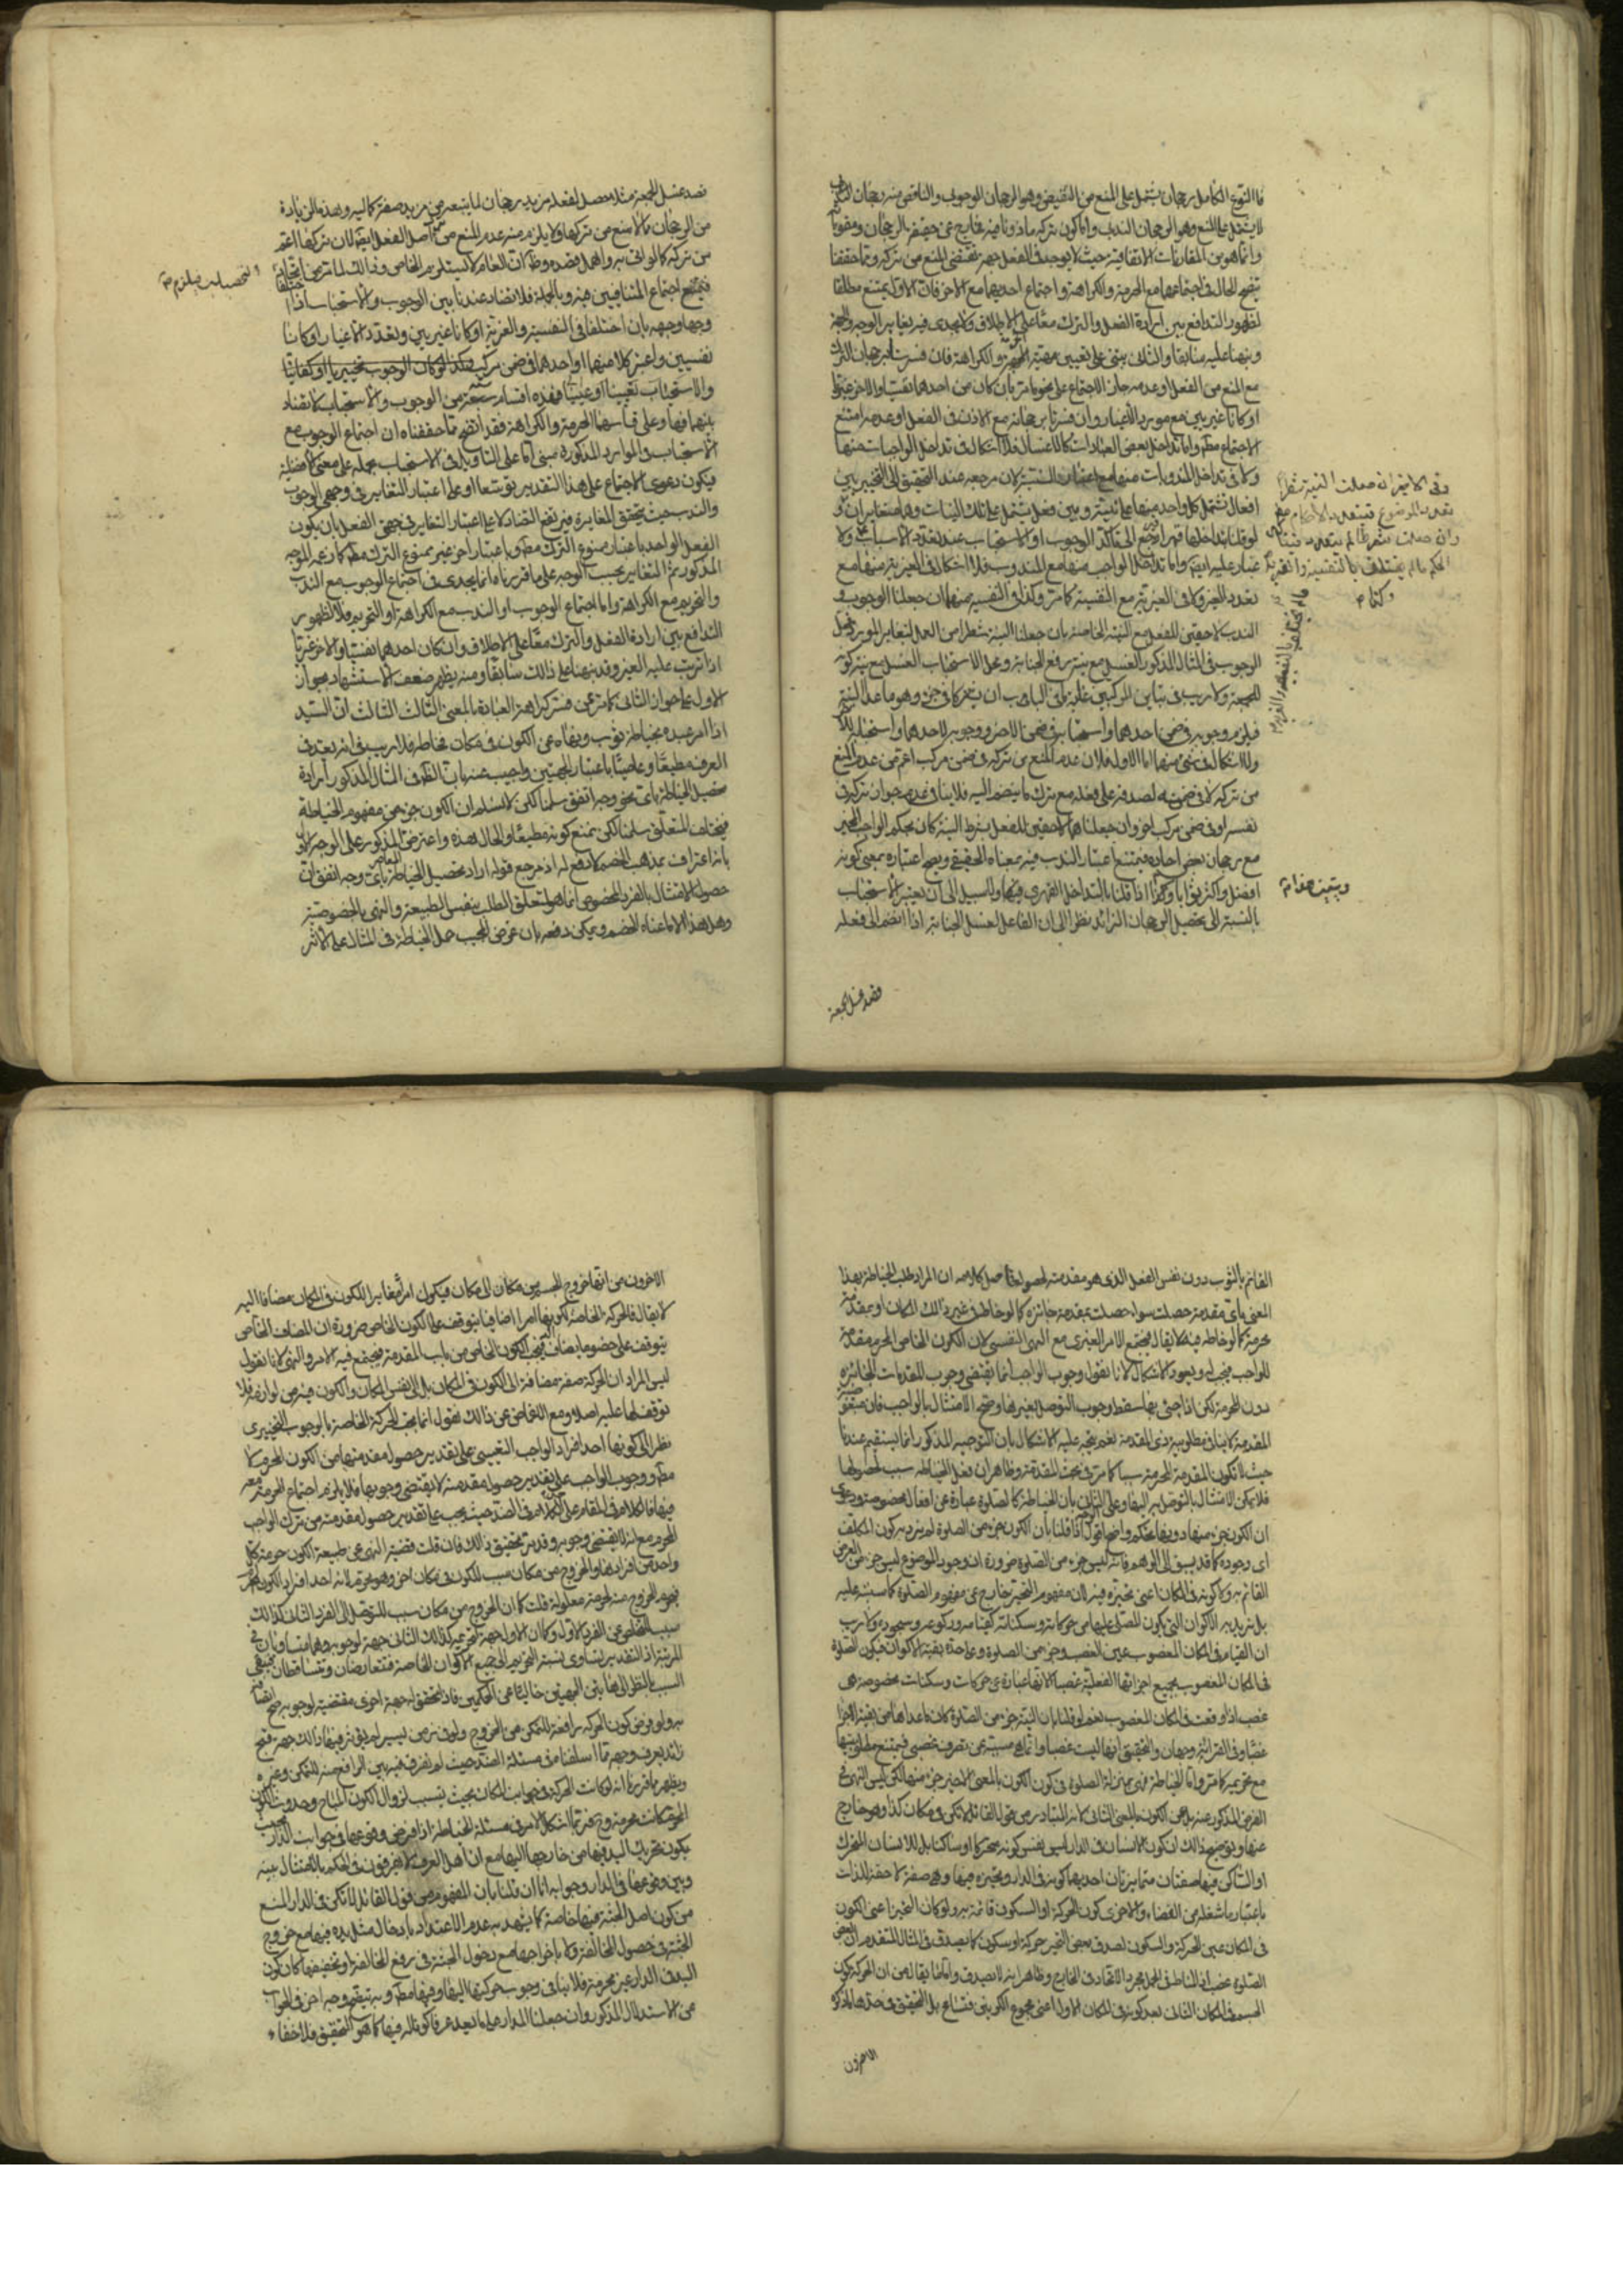 فالنوع الكامل رجحان يشتمل على المنع من النقيض وهو الرجحان الوجوبي والناقص منه رجحان
لا يشتمل على المنع وهو الرجحان الندبي واما كون تركه ماذونا فيه فخارج عن حقيقة الرجحان ومقوماته
وانما هو من المقارنات الاتفاقية حيث لا يوجد في الفعل جهة تقتضي المنع من تركه ومما حققنا
يتضح الحال في اجتماعهما مع الحرمة والكراهة واجتماع احديهما مع الاخر فان الاول يمتنع مطلقا
لظهور التدافع بين ارادة الفعل والترك معا على الاطلاق ولا يجدي فيه تغاير الوجه والجهة
وبنهنا عليه سابقا والثاني يبتنى على تعيين والكراهة فان فسرنا برجحان الترك
مع المنع من الفعل او عدمه جاز الاجتماع على نحو ما مر بان كان من احدهما نفسيا والاخر غيريا
او كانا غيريين مع مورد الاعتبار وان فسرنا برجحانه مع الاذن في الفعل او عدمه امتنع
الاجتماع مطلقا واما تداخل بعض العبادات كالاغسال فلا اشكال في تداخل الواجبات منها
ولا في تداخل المندوبات منها مع اعتبار النسبة لان مرجعه عند التحقيق الى التخيير بين
افعال تشتمل كل واحد منها على نية وبين فعل يشتمل على تلك النيات وهما متغايران
لو قلنا بتداخلها قهرا رجع الى تاكد الوجوب او الاستحباب عند تعدد الاسباب ولا
غبار عليه ايضا واما تداخل الواجب منها مع المندوب فلا اشكال في الغيرية منها مع
تعدد الغير ولا في الغيرية مع النفسية كما مر وكذا في النفسية منها ان جعلنا الوجوب و
الندب لاحقين للفعل مع النية الخاصة بان جعلنا النية شطرا من العمل لتغاير المورد فمحل
الوجوب في المثال المذكور الغسل مع نية رفع الجنابة ومحل الاستحباب الغسل مع نية كونه
للجمعة ولا ريب في تباين المركبين غاية ما في الباب ان يشتركا في جزء وهو ما عدا النية
فيلزم وجوبه في ضمن احدهما واستحبابه في ضمن الاخر ووجوبه لاحدهما واستحبابه
ولا اشكال في شئ منهما اما الاول فلان عدم المنع من تركه في ضمن مركب اعم من عدم المنع
من تركه لا في ضمنه لصدقه على فعله مع ترك ما ينضم اليه فلا ينافي عدم جواز تركه في
نفسه او في ضمن مركب اخر وان جعلناهما لاحقين للفعل بشرط النية كان بحكم الواجب المخير
مع رجحان بعض احاده فيمتنع اعتبار الندب فيه بمعناه الحقيقي ويصح اعتباره بمعنى كونه
افضل واكثر ثوابا وكذا اذا قلنا بالتداخل القهري فيها ولا سبيل الى ان يعتبر الاستحباب
بالنسبة الى تحصيل الرجحان الزائد نظرا الى ان الفاعل لغسل الجنابة اذا انضم الى فعله
وفي الاخير ان جعلت النية شطرا
تعدد الموضوع فيتعدد الاحكام
وان جعلت شرطا لم يتعدد
الحكم ما لم يختلف بالنفسية والغيرية
قصد غسل الجمعة
قصد غسل الجمعة مثلا حصل لفعله مزيد رجحان لما يتبعه من مزيد صفة كمالية وهذه الزيادة
من الرجحان مما لا منع من تركها ولا يلزم منه عدم المنع من اصل الفعل ايضا لان تركها اعم
من تركه كما لو اتى به واهمل قصده وظ ان العام لا يستلزم الخاص وذلك لما مر من
فيمتنع اجتماع المتنافيين فيه وبالجملة فلا تضاد عندنا بين الوجوب والاستحباب اذا
وجها وجهة بان اختلفا في النفسية والغيرية او كانا غيريين وتعدد الاغيار او كانا
نفسيين واعتبر كلا منهما او احدهما في ضمن مركب وكذا لو كان الوجوب تخييريا او كفائيا
والاستحباب تعيينيا او عينيا فهذه اقسام من الوجوب والاستحباب لا تضاد
بينهما فيها وعلى قياسها الحرمة والكراهة فقد اتضح مما حققناه ان اجتماع الوجوب مع
الاستحباب في الموارد المذكورة مبنى اما على التاويل في الاستحباب بحمله على معنى الافضلية
فيكون دعوى الاجتماع على هذا التقدير توسعا او على اعتبار التغاير في وجهي الوجوب
والندب حيث يتحقق المغايرة فيرتفع التضاد لا على اعتبار التغاير في جهتي الفعل بان يكون
الفعل الواحد باعتبار ممنوع الترك مط وباعتبار اخر غير ممنوع الترك مط كما زعمه الموجه
المذكور ثم التغاير بحسب الوجه على ما قررناه انما يجدي في اجتماع الوجوب مع الندب
والتحريم مع الكراهة واما اجتماع الوجوب او الندب مع الكراهة او التحريم فلا لظهور
التدافع بين ارادة الفعل والترك معا على الاطلاق وان كان احدهما نفسيا والاخر غيريا
اذا ترتب عليه الغير وقد بنهنا على ذلك سابقا ومنه يظهر ضعف الاستشهاد بجواز
الاول على جواز الثاني كما مر ممن فسر كراهة العبادة بالمعنى الثالث الثالث ان السيد
اذا امر عبده بخياطة ثوب ونهاه عن الكون في مكان فخاطه فلا ريب في انه يعد في
العرف مطيعا وعاصيا باعتبار الجهتين واجيب عنه بان الظ في المثال المذكور ارادة
تحصيل الخياطة باي نحو وجه اتفق سلمنا لكن لا نسلم ان الكون جزء من مفهوم الخياطة
فيختلف المتعلق سلمنا لكن نمنع كونه مطيعا والحال هذه واعترض المذكور على الوجه الاول
بانه اعتراف بمذهب الخصم لا دفع له اذ مرجع قوله اراد تحصيل الخياطة باي وجه اتفق ان
حصول الامتثال بالفرد المخصوص انما هو لتعلق الطلب بنفس الطبيعة والنهي بالخصوصية
وهل هذا الا ما عناه الخصم ويمكن دفعه بان غرض المجيب حمل الخياطة في المثال على الاثر
القائم بالثوب دون نفس الفعل الذي هو مقدمة لحصوله فاصل كلامه ان المراد طلب الخياطة بهذا
المعنى باي مقدمة حصلت سواء حصلت بمقدمة جائزة كما لو خاطه في غير ذلك المكان او بمقدمة
محرمة كما لو خاطه فيه لا يقال فيجتمع الامر الغيري مع النهي النفسي لان الكون الخاص المحرم مقدمة
للواجب فيجب ويعود الاشكال لانا نقول وجوب الواجب انما يقتضي وجوب المقدمات الجائزة
دون المحرمة لكن اذا اتى بها سقط وجوب التوصل بغيرها وصح الامتثال بالواجب فان مبغوضية
المقدمة لا ينافي مطلوبية ذي المقدمة نعم يتجه عليه الاشكال بان التوجيه المذكور انما يستقيم عندنا
حيث لا تكون المقدمة المحرمة سببا كما مر في بحث المقدمة وظاهر ان فعل الخياطة سبب لحصولها
فلا يمكن الامتثال بالتوصل به اليها وعلى الثاني بان الخياطة كالصلوة عبارة عن افعال مخصوصة ودعوى
ان الكون جزء منها دونها تحكم واضح اقول اذا قلنا بان الكون جزء من الصلوة لم نرد به كون المكلف
اى وجوده كما قد يسبق الى الوهم فانه ليس جزء من الصلوة ضرورة ان وجود الموضوع ليس جزء من العرض
القائم به ولا كونه في المكان اعنى تحيزه فيه لان مفهوم التحيز خارج عن مفهوم الصلوة كما سننبه عليه
بل نريد به الاكوان التى يكون المصلى عليها من حركاته وسكناته كقيامه وركوعه وسجوده ولا ريب
ان القيام في المكان المغصوب عين الغصب وجزء من الصلوة وعلى حذوه بقية الاكوان فيكون الصلوة
في المكان المغصوب بجميع اجزائها الفعلية غصبا لانها عبارة عن حركات وسكنات مخصوصة هى
غصب اذا وقعت في المكان المغصوب نعم لو قلنا بان النية جزء من الصلوة كان ما عداها من بقية الاجزاء
غصبا وفي القرائة وجهان والتحقيق انها ليست غصبا وانما هي مسببة عن تصرف غصبي فيمتنع مطلوبيتها
مع تحريمه كما مر واما الخياطة فهى بمنزلة الصلوة في كون الكون بالمعنى الاخير جزء منها لكن ليس النهي في
الفرض المذكور عنه بل عن الكون بالمعنى الثاني لانه المتبادر من قول القائل لا تكن في مكان كذا وهو خارج
عنها وتوضيح ذلك ان كون الانسان في الدار ليس نفس كونه متحركا او ساكنا بل للانسان المتحرك
او الساكن فيها صفتان متمايزتان احديهما كونه في الدار وتحيزه فيها وهي صفة لاحقة للذات
باعتبار ما شغله من الفضاء والاخرى كون الحركة او السكون قائمة به ولو كان التحيز اعنى الكون
في المكان عين الحركة والسكون لصدق بعض التحيز حركة او سكون كما يصدق في المثال المتقدم
الصلوة غصب اذ المناط في الحمل مجرد الاتحاد في الخارج وظاهر انه لا يصدق واما ما يقال من ان الحركة كون
الجسم في المكان الثاني بعد كونه في المكان الاول اعنى مجموع الكونين فتسامح بل التحقيق في حدها ما ذكره
الاخرون
الاخرون من انها خروج الجسم من مكان الى مكان فيكون امرا مغايرا للكون في المكان مضافا اليه
لا يقال فالحركة الخاصة لكونها امرا اضافيا يتوقف على الكون الخاص ضرورة ان المضاف الخاص
يتوقف على خصوص ما يضاف فيجب الكون الخاص من باب المقدمة فيجتمع فيه الامر والنهي لانا نقول
ليس المراد ان الحركة صفة مضافة الى الكون في المكان بل الى نفس المكان والكون فيه من لوازمه فلا
توقف لها عليه اصلا ومع التغاضي عن ذلك نقول انما يجب الحركة الخاصة بالوجوب التخييري
نظرا الى كونها احد افراد الواجب التعييني على تقدير حصول مقدمتها من الكون المحرم لا
مط ووجوب الواجب على تقدير حصول مقدمته لا يقتضي وجوبها فلا يلزم اجتماع الحرمة معه
فيها فالكلام في المقام على الكلام في الضد حيث يجب على تقدير حصول مقدمته من ترك الواجب
المحرم مع انه لا يقتضي وجوبه وقد مر تحقيق ذلك فان قلت قضية النهي عن طبيعة الكون حرمة كل
واحد من افرادها والخروج من مكان سبب للكون في مكان اخر وهو محرم لانه احد افراد الكون
فيحرم الخروج منه لحرمة معلوله قلت كما ان الخروج من مكان سبب للتوصل الى الفرد الثاني كذلك
سبب التخلص عن الفرد الاول وكما ان الاول جهة لتحريمه كذلك الثاني جهة لوجوبه وهما متساويان في
المرتبة اذ التقدير تساوى نسبة التحريم الى جميع الاكوان الخاصة فتتعارضان وتتساقطان فيبقى
السبب بالنظر الى هاتين الجهتين خاليا عن الحكمين فاذا تحقق له جهة اخرى مقتضية لوجوبه صح
به ولو فرض كون الحركة رافعة للتمكن من الخروج ولو في زمن يسير لم يؤثر فيها ذلك جهة قبح
زائد يعرف وجهه مما اسلفنا في مسئلة الضد حيث لم نفرق فيه بين الرافع منه للتمكن وغيره
ويظهر ما قررنا انه لو كانت الحركة في جوانب المكان بحيث يتسبب لزوال الكون المباح وحدوث الكون
المحرم كانت محرمة وح فربما اشكل الامر في مسئلة الخياطة اذا فرض وقوعها في جوانب الدار
يكون تحريك اليد فيها من خارجها اليها مع ان اهل العرف لا يفرقون في الحكم بالامتثال بينه
وبين وقوعها في الدار وجوابه انا ان قلنا بان المفهوم من قول القائل لا تكن في الدار المنع
من كون اصل الجثة فيها خاصة كما يشهد به عدم الاعتداد بادخال مثل يده فيها مع خروج
الجثة في حصول المخالفة ولا باخراجها مع دخول الجثة في رفع المخالفة او تخفيفها كان كون
اليد في الدار غير محرمة فلا ينافي وجوب حركتها اليها وفيها مط وبه يتضح وجه اخر في الجواب
عن الاستدلال المذكور وان جعلنا المدار على ما يعد عرفا كونا له فيها كما هو التحقيق فلا خفاء